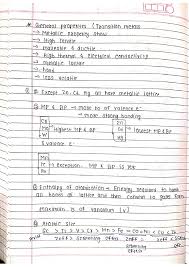 * General properties (Transition metals
→ Metallic property show
→ High tensile
→ maleable & ductile
→ high thermal & Electrical conductivity
→ metallic lustre
→ hard
→ less volatile
* Except Zn, Cd, Hg all have metallic lattice
MP & BP → more no of valence e⁻
→ more strong bonding
Cr
Mo
W
Highest MP & BP
Zn
Cd
Hg
lowest MP & BP
Mn
Tc
Re
Exception MP & BP is
Enthalpy of atomization → Energy required to break
all bonds of lattice and then convert to gases form
Maximum is of Vanadium (V)
Atomic size
Sc > Ti > V > Cr > Mn > Fe